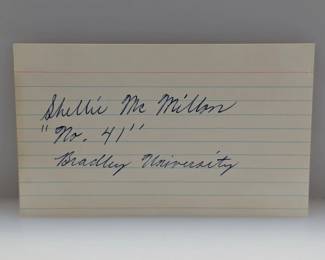 Shellie Mc Millon
"No. 41"
Bradley University